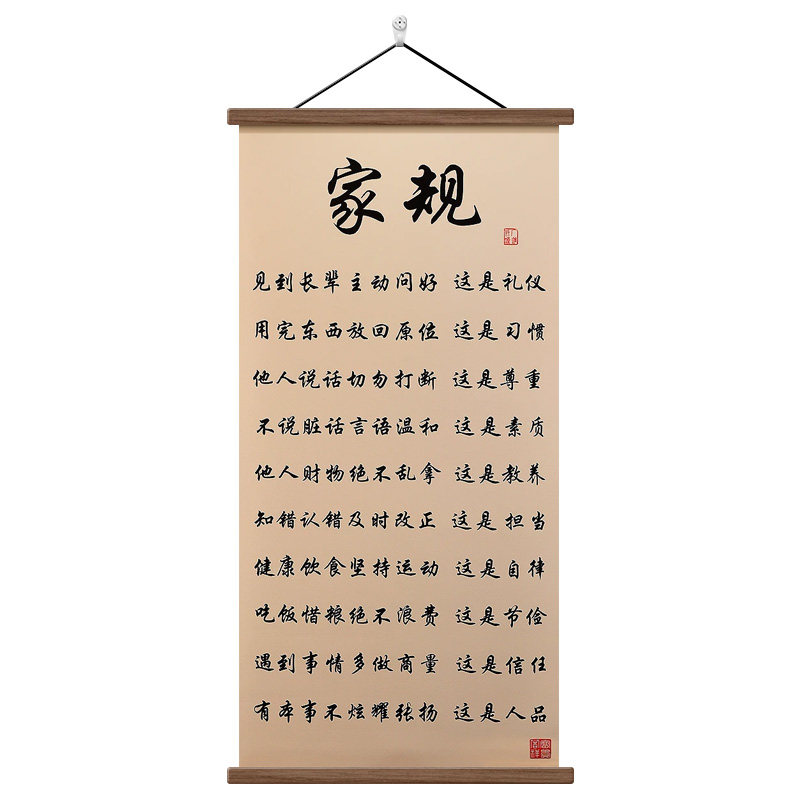 家规
见到长辈主动问好 这是礼仪
用完东西放回原位 这是习惯
他人说话切勿打断 这是尊重
不说脏话言语温和 这是素质
他人财物绝不乱拿 这是教养
知错认错及时改正 这是担当
健康饮食坚持运动 这是自律
吃饭惜粮绝不浪费 这是节俭
遇到事情多做商量 这是信任
有本事不炫耀张扬 这是人品